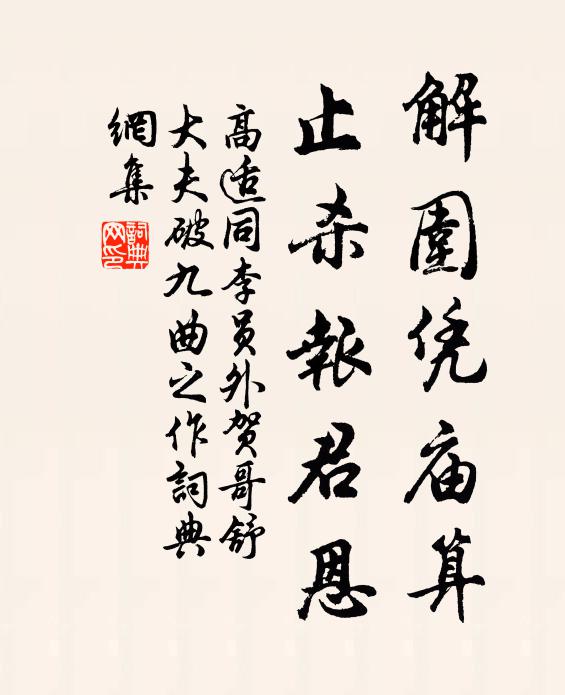 解圍凭庙算
止杀報君恩
高适同李员外贺哥舒
大夫破九曲之作詞典
網集
詞典
网印